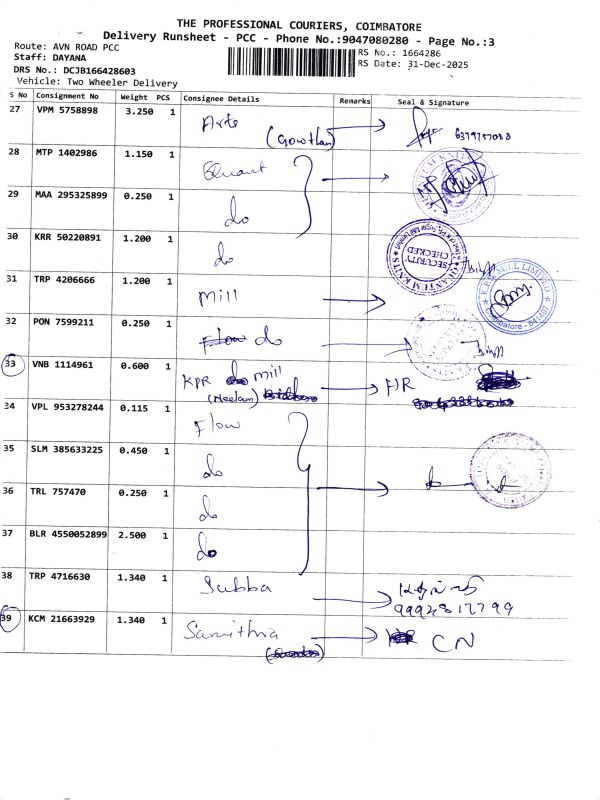 THE PROFESSIONAL COURIERS, COIMBATORE
Delivery Runsheet - PCC - Phone No.:9047080280 - Page No.:3
Route: AVN ROAD PCC
RS No.: 1664286
Staff: DAYANA
RS Date: 31-Dec-2025
DRS No.: DCJB166428603
Vehicle: Two Wheeler Delivery
S No Consignment No Weight PCS Consignee Details Remarks Seal & Signature
27 VPM 5758898 3.250 1 Arte
(Gowtham) 6379757088
28 MTP 1402986 1.150 1 Quant
29 MAA 295325899 0.250 1 do
30 KRR 50220891 1.200 1 do
SECURITY CHECKED
31 TRP 4206666 1.200 1 Mill
K.P.R. MILL LIMITED
Coimbatore - 641407
32 PON 7599211 0.250 1 do
33 VNB 1114961 0.600 1 KPR mill HR
(Neelam)
34 VPL 953278244 0.115 1 Flow
35 SLM 385633225 0.450 1 do
36 TRL 757470 0.250 1 do
37 BLR 4550052899 2.500 1 do
38 TRP 4716630 1.340 1 Subba
39 KCM 21663929 1.340 1 Samithra CN